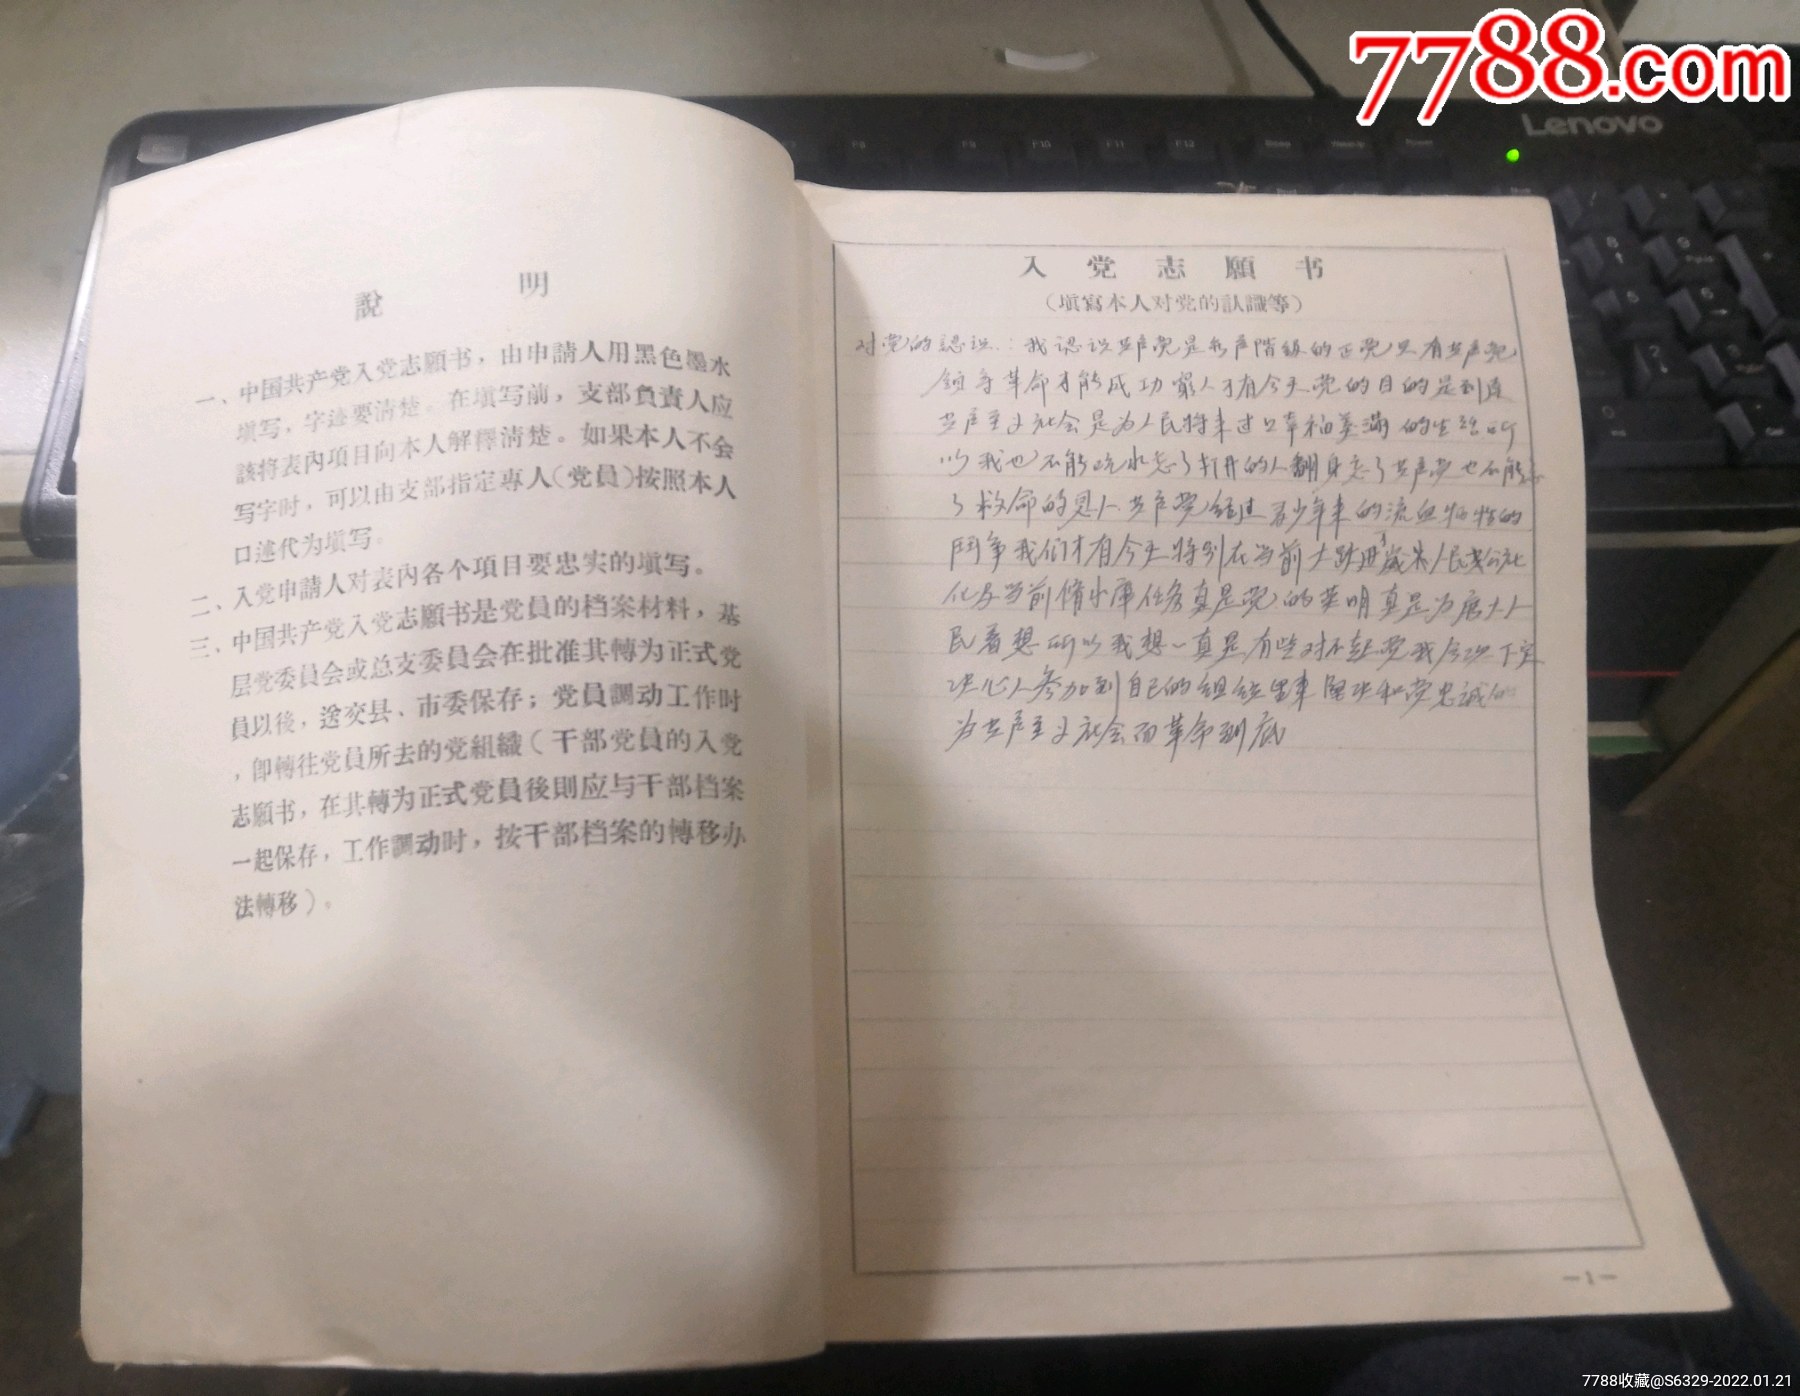 7788.com
Lenovo
F9
F10
F11
F12
說明
一、中国共产党入党志願书，由申請人用黑色墨水
填写，字迹要清楚。在填写前，支部負責人应
該将表內項目向本人解釋清楚。如果本人不会
写字时，可以由支部指定專人（党員）按照本人
口述代为填写。
二、入党申請人对表內各个項目要忠实的填写。
三、中国共产党入党志願书是党員的档案材料，基
层党委員会或总支委員会在批准其轉为正式党
員以後，送交县、市委保存；党員調动工作时
，卽轉往党員所去的党組織（干部党員的入党
志願书，在其轉为正式党員後則应与干部档案
一起保存，工作調动时，按干部档案的轉移办
法轉移）。
入党志願书
（填寫本人对党的認識等）
对党的認识：我认识共产党是 产階級的 党只有共产党
領导革命才能成功窮人才有今天党的目的是到达
共产主义社会是为人民将来过 幸福美滿的生活所
以我也不能吃水忘了打井的人翻身忘了共产党也不能忘
了救命的恩人共产党经过多少年来的流血牺牲的
鬥争我们才有今天特别在当前大跃进 人民公社
化及当前修水庫任务真是党的英明真是为广大人
民着想所以我想一真是有些对不起党我今次下定
决心 参加到自己的组织里来 坚决和党忠诚的
为共产主义社会而革命到底
—1—
7788收藏@S6329-2022.01.21